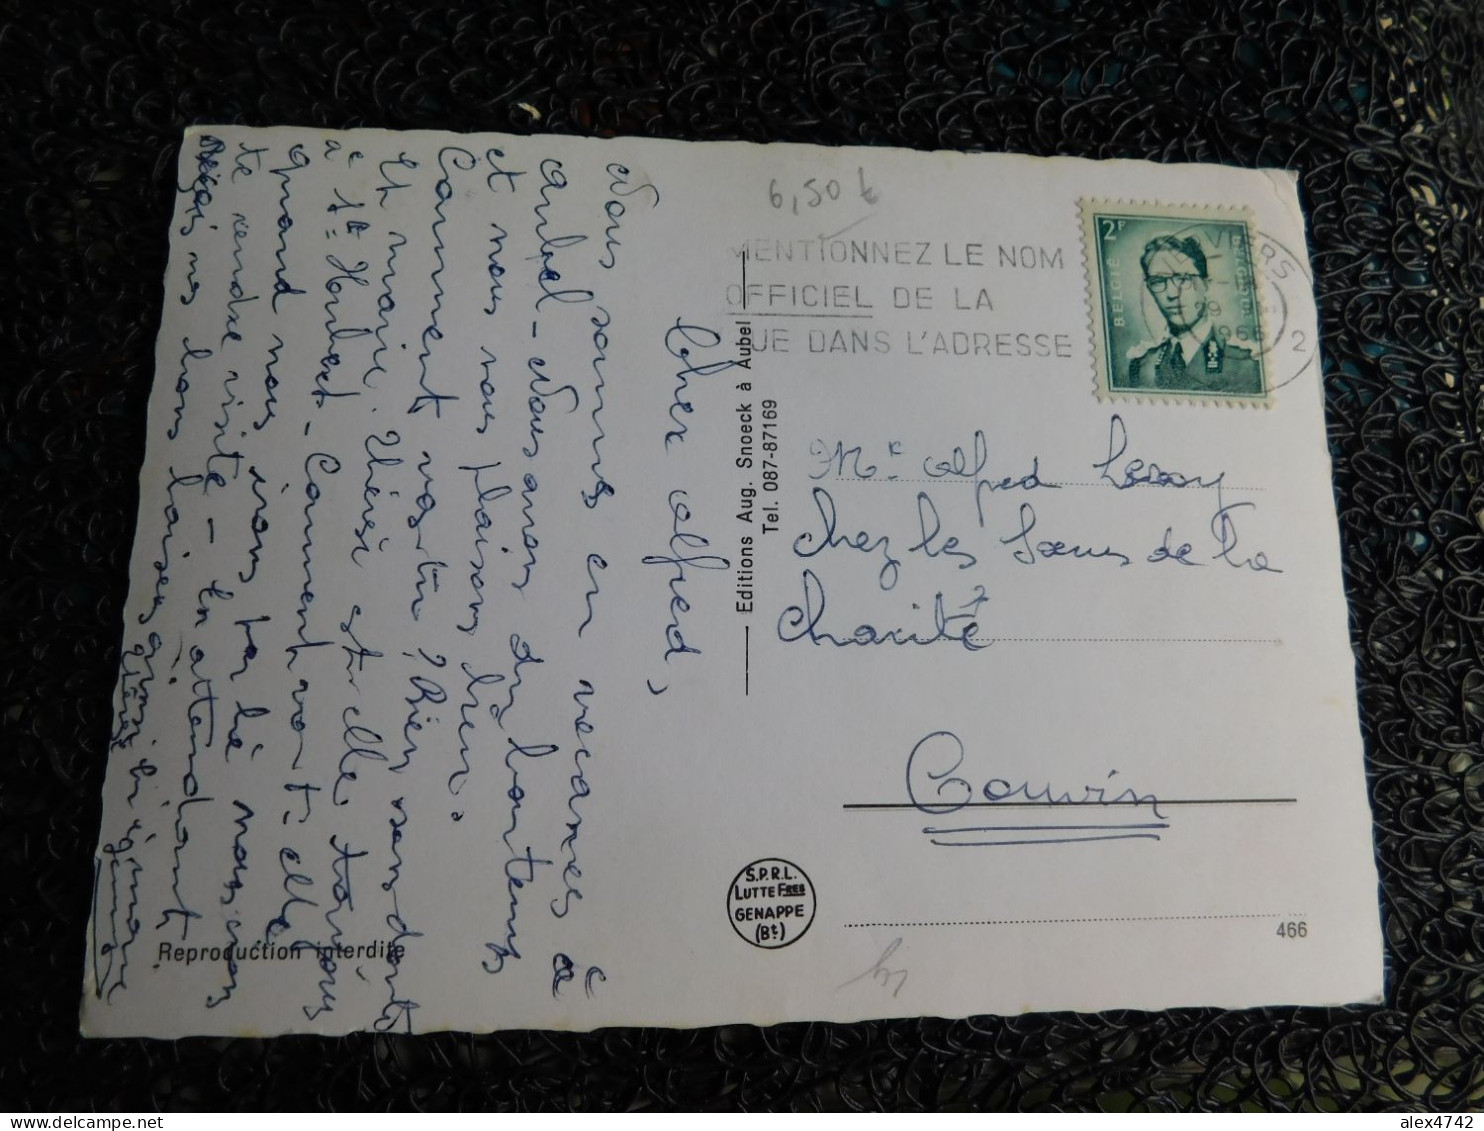 6,50
MENTIONNEZ LE NOM
OFFICIEL DE LA
RUE DANS L'ADRESSE
2F
BELGIE
BELGIQUE
VIERS
29
1966
2
Mr Alfred Leroy
Chez les Sœurs de la
Charité
Couvin
Editions Aug. Snoeck à Aubel
Tel. 087-87169
S.P.R.L.
LUTTE FRES
GENAPPE
(Bt)
466
Reproduction interdite
Cher Alfred,
Nous sommes en vacances à
Aubel - Nous avons du bon temps
et nous nous plaisons bien.
Comment vas-tu ? Bien sans doute
Et marie Thérèse est-elle toujours
à St Hubert - Comment va-t-elle
quand nous irons par là nous irons
te rendre visite - En attendant
reçois nos bons baisers
alex4742